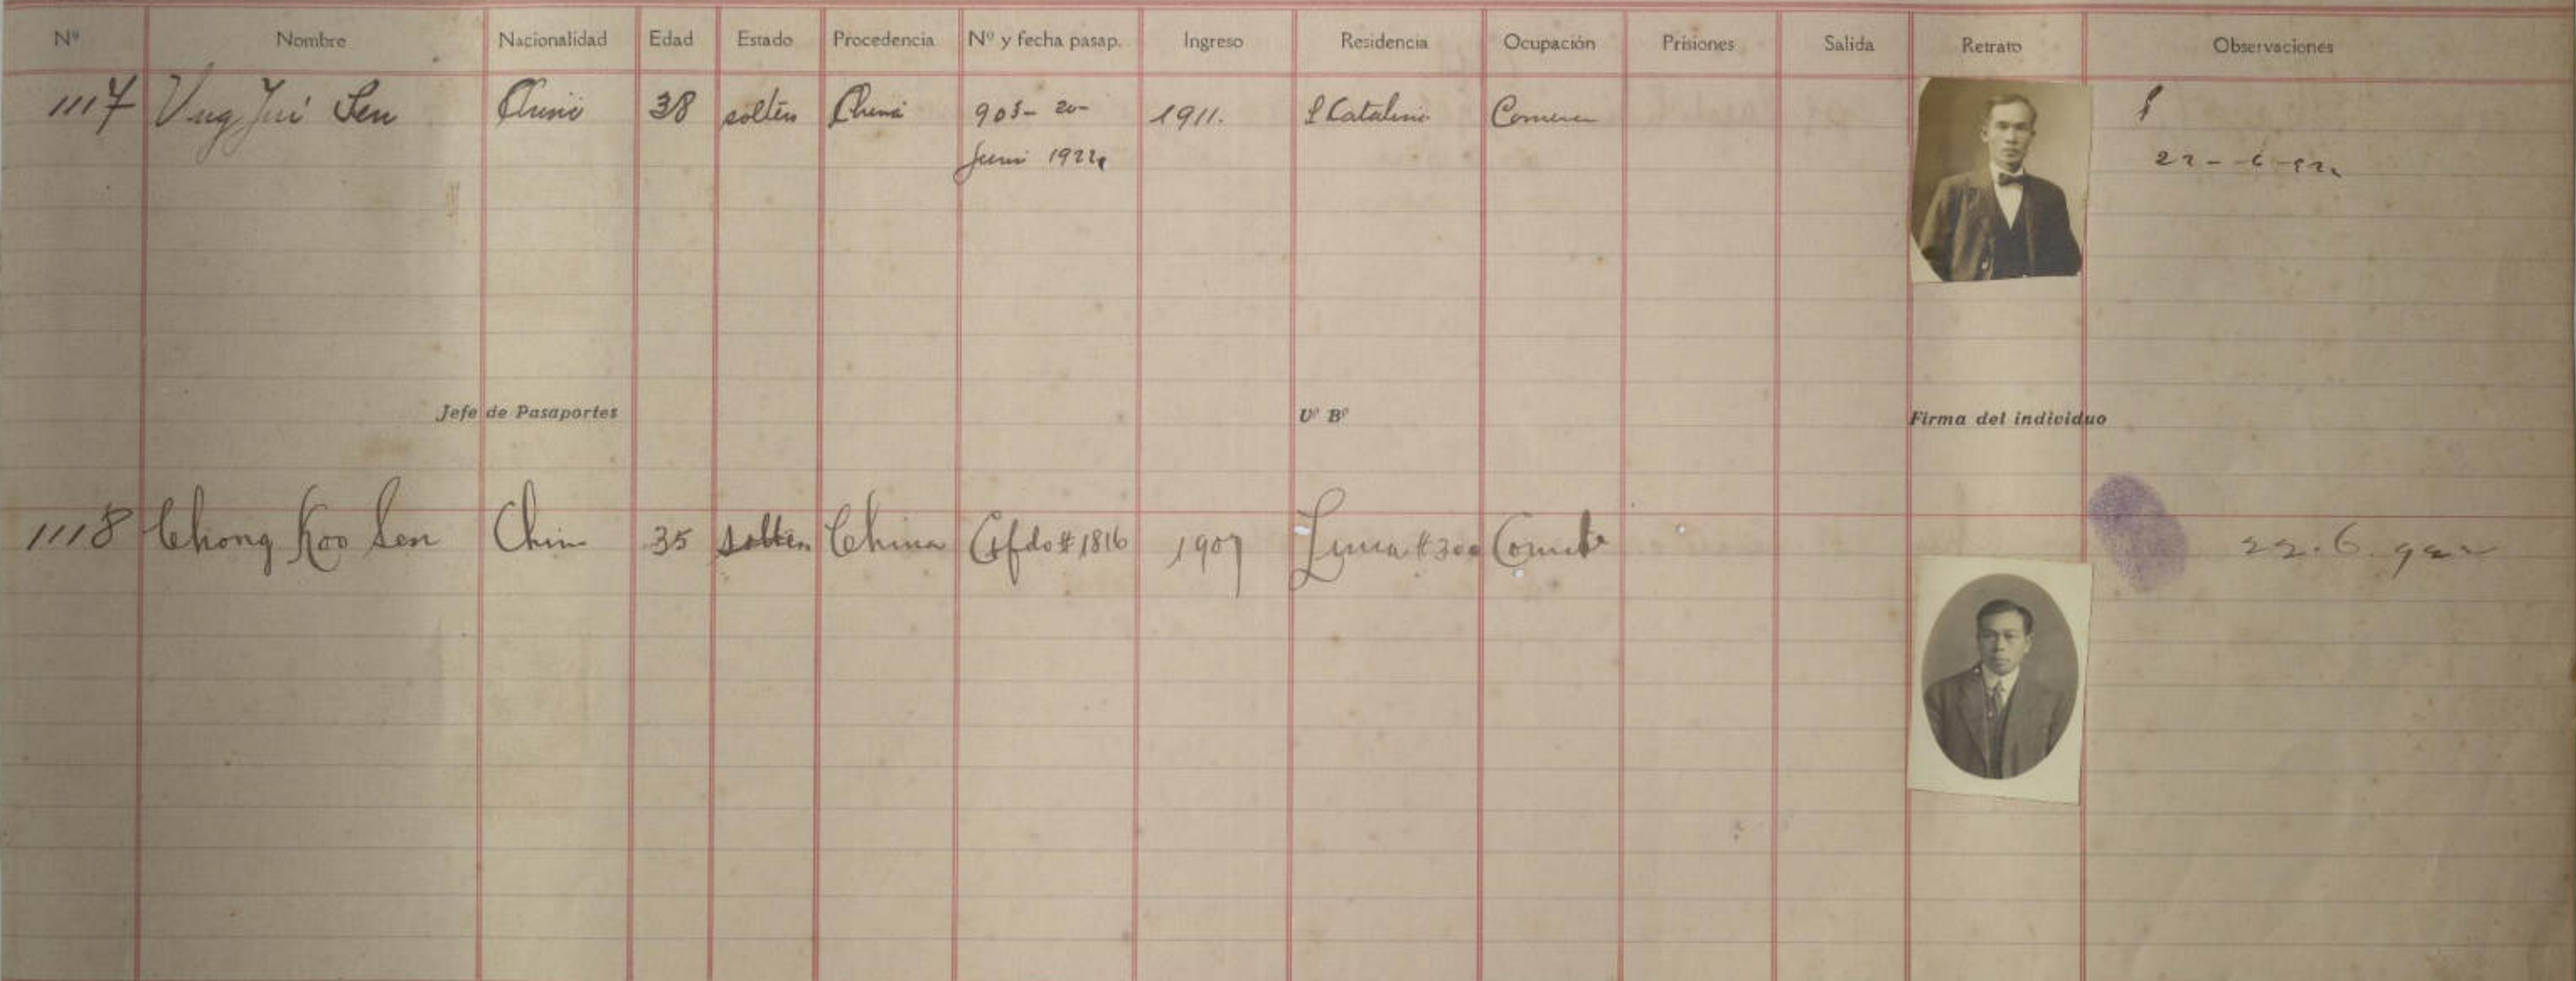 Nº Nombre Nacionalidad Edad Estado Procedencia Nº y fecha pasap. Ingreso Residencia Ocupación Prisiones Salida Retrato Observaciones
1117 Ung Jui Sen Chino 38 soltero China 903- 20- 1911. S Catalina Comercio
Junio 1922 22-6-922
Jefe de Pasaportes Vº Bº Firma del individuo
1118 Chong Koo Sen Chino 35 soltero China Ctfdo # 1816 1907 Lima # 300 Comerte 22.6.922